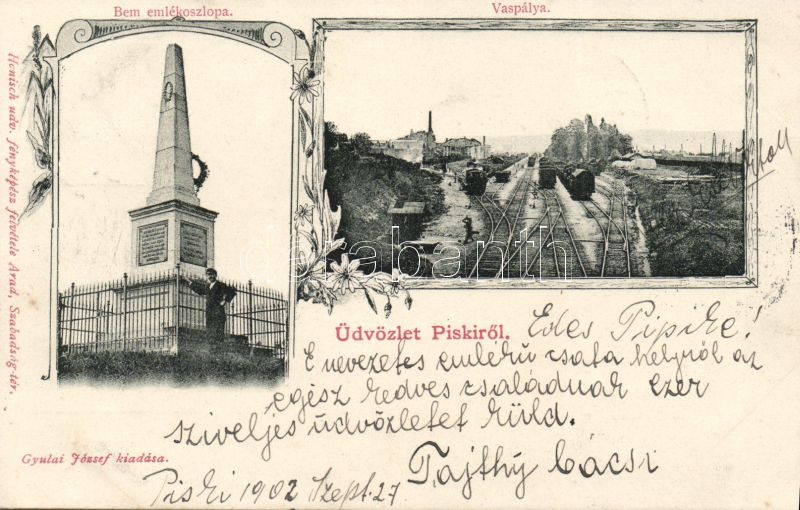 Bem emlékoszlopa.
Vaspálya.
Honisch udv. fényképész felvétele Arad, Szabadság-tér.
darabanth
Üdvözlet Piskiről.
Edes Pipike!
E nevezetes emlékű csata helyről az
egész kedves családnak ezer
sziveljes üdvözletet küld.
Tajthy bácsi
Gyulai József kiadása.
Piski 1902 Szept. 27